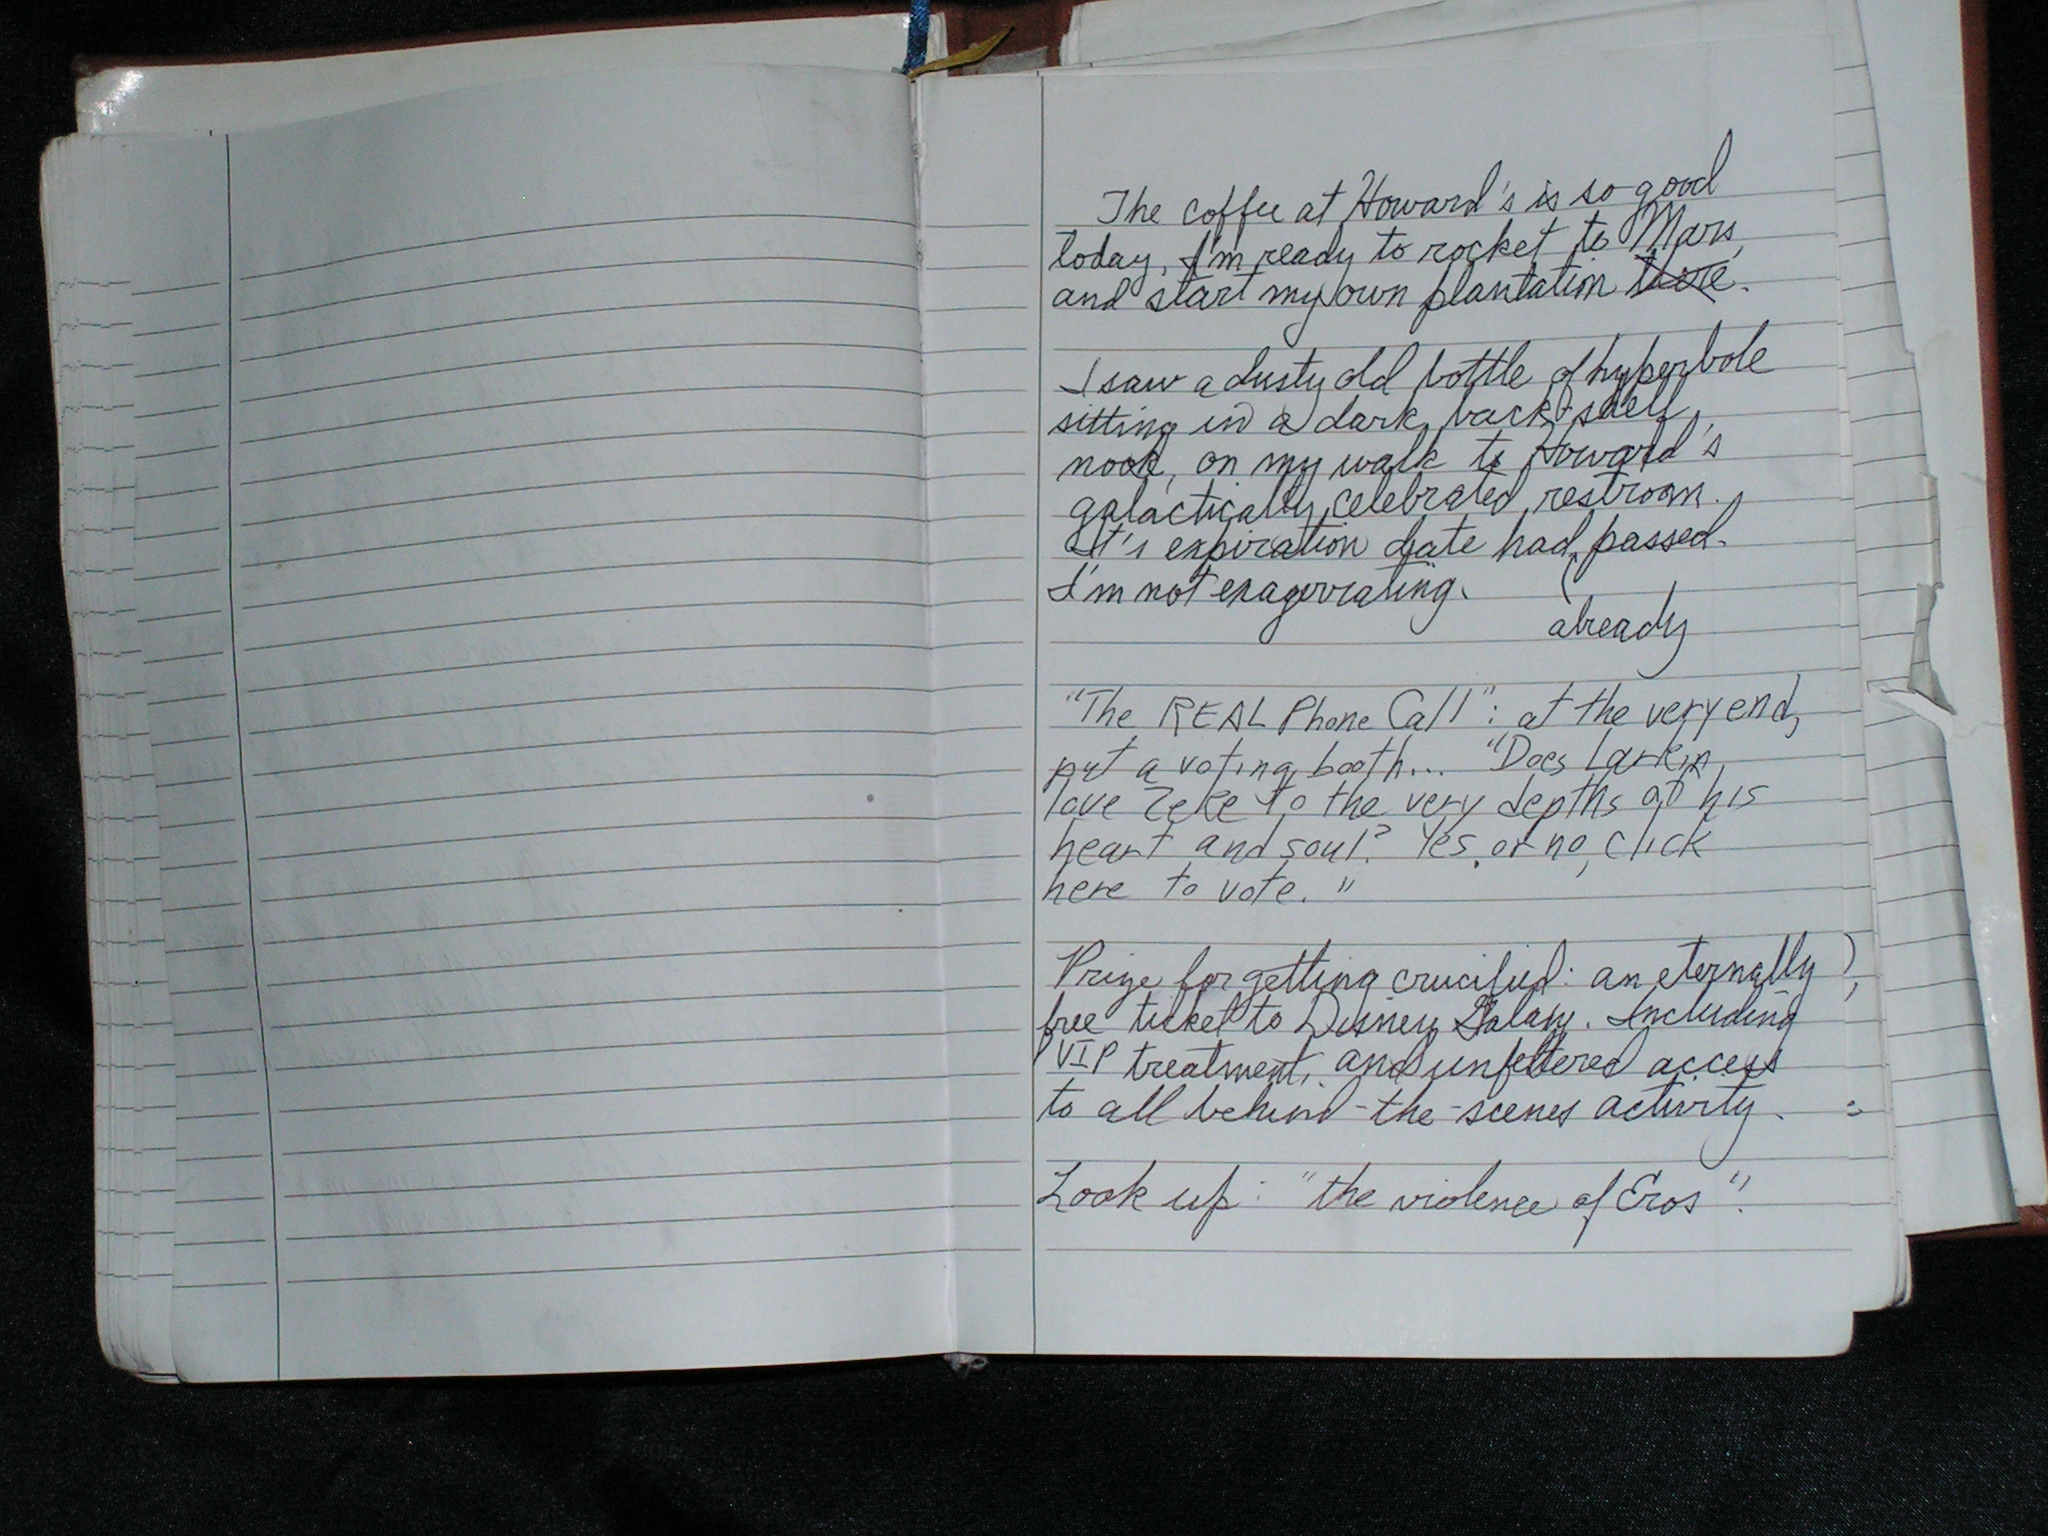 The coffee at Howard's is so good
today, I'm ready to rocket to Mars,
and start my own plantation there.
I saw a dusty old bottle of hyperbole
sitting in a dark, back-shelf,
nook, on my walk to Howard's
galactically celebrated restroom.
It's expiration date had passed.
I'm not exagerrating.
already
"The REAL Phone Call": at the very end,
put a voting booth... "Does Larkin
love Zeke to the very depths of his
heart and soul? Yes or no, click
here to vote."
Prize for getting crucified: an eternally
free ticket to Disney Galaxy. Including
VIP treatment, and unfettered access
to all behind-the-scenes activity.
Look up: "the violence of Eros".